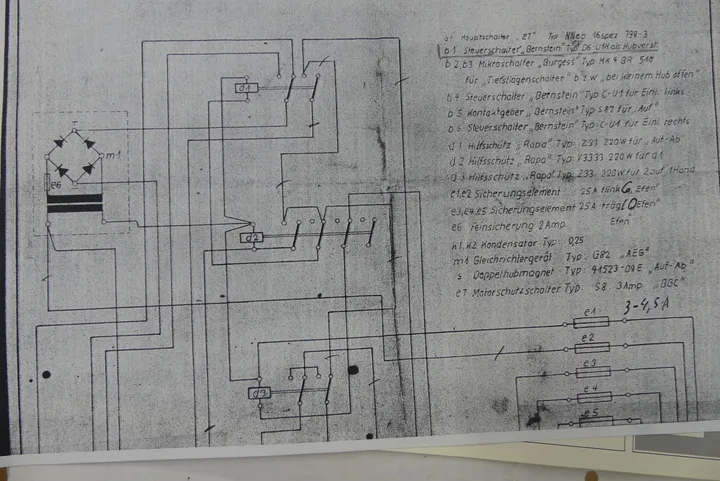 a1 Hauptschalter „ET" Typ NNeo 16spez 798-3
b1 Steuerschalter „Bernstein" Typ D6-U1H als Hubverst.
b2, b3 Mikroschalter „Burgess" Typ MK 4 BR
für „Tiefstlagenschalter" bzw „bei kleinem Hub offen"
b4 Steuerschalter „Bernstein" Typ C-U1 für Einl. links
b5 Kontaktgeber „Bernstein" Typ: S87 für „Auf"
b6 Steuerschalter „Bernstein" Typ: C-U1 für Einl. rechts
d1 Hilfsschütz „Rapa" Typ: Z33 220W für „Auf-Ab"
d2 Hilfsschütz „Rapa" Typ: V3333 220W für d1
d3 Hilfsschütz „Rapa" Typ: Z33 220W für 2 auf 1 Hand
e1.e2 Sicherungselement 25A flink 6 Efen"
e3,e4.e5 Sicherungselement 25A träg 10 Efen"
e6 Feinsicherung 2 Amp. Efen"
K1.K2 Kondensator Typ: 0,25
m1 Gleichrichtergerät Typ: G82 „AEG"
s Doppelhubmagnet Typ: 41523-09E „Auf-Ab"
e7 Motorschutzschalter Typ: S8 3Amp. „BBC"
3-4,5A
d1
m1
e6
d2
d3
e1
e2
e3
e4
e5